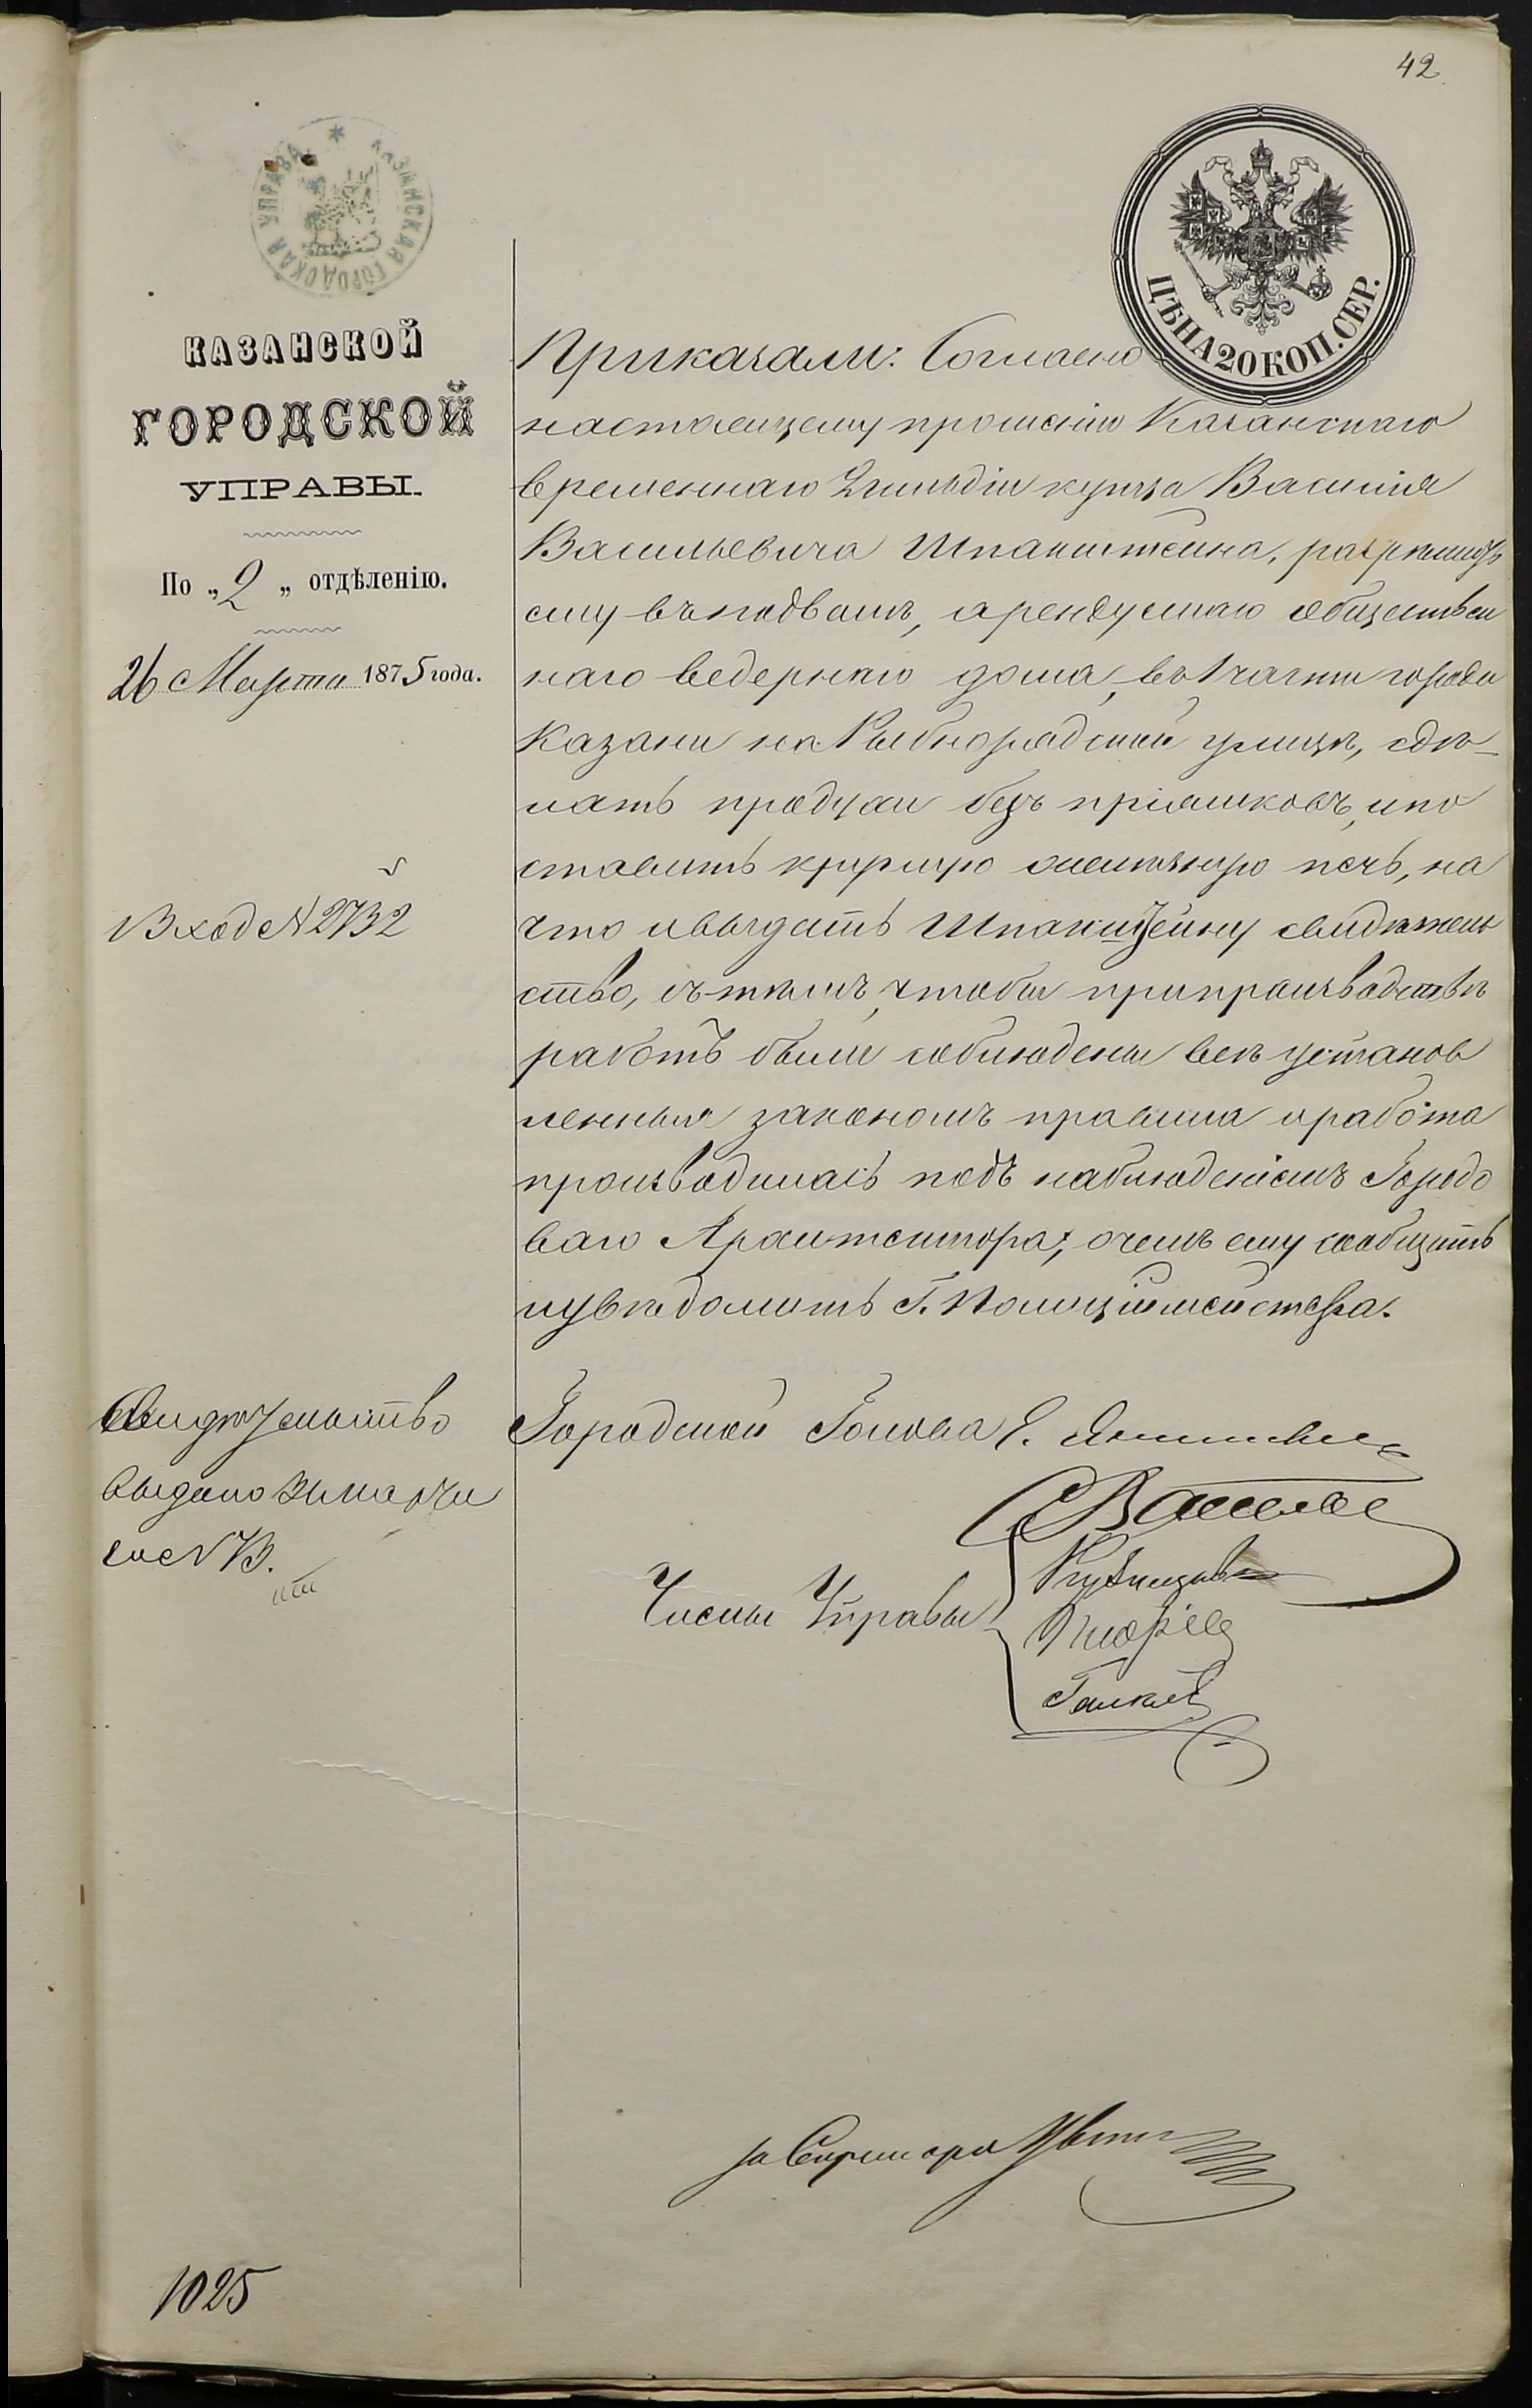 42
КАЗАНСКАЯ ГОРОДСКАЯ УПРАВА
ЦѢНА 20 КОП. СЕР.
КАЗАНСКОЙ
ГОРОДСКОЙ
УПРАВЫ.
По „2„ отдѣленію.
26 Марта 1875 года.
Вход № 2732
Свидѣтельство
выдано
за №
1025
Приказали: Согласно
настоящему прошенію Казанскаго
временнаго 2 гильдіи купца Василія
Васильевича Шпакштейна, разрѣшить
ему въ подвалѣ, арендуемаго обществен
наго ведернаго дома, въ 1 части города
Казани на Рыбнорядской улицѣ, сдѣ-
лать продухи безъ пріямковъ, и по
ставить кухонную печь, на
что и выдать Шпакштейну свидѣтель
ство, съ тѣмъ, чтобы при производствѣ
работъ были соблюдены всѣ установ
ленныя закономъ правила и работа
производилась подъ наблюденіемъ Городо
ваго Архитектора; о чемъ ему сообщить
и увѣдомить Г. Полиціймейстера.
Городской Голова Е.
Члены Управы
за Секретаря